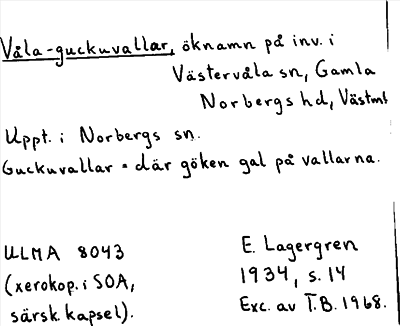 Våla-guckuvallar, öknamn på inv. i
Västervåla sn, Gamla
Norbergs hd, Västml
Uppt. i Norbergs sn.
Guckuvallar = där göken gal på vallarna.
ULMA 8043
(xerokop. i SOA,
särsk. kapsel).
E. Lagergren
1934, s. 14
Exc. av T.B. 1968.